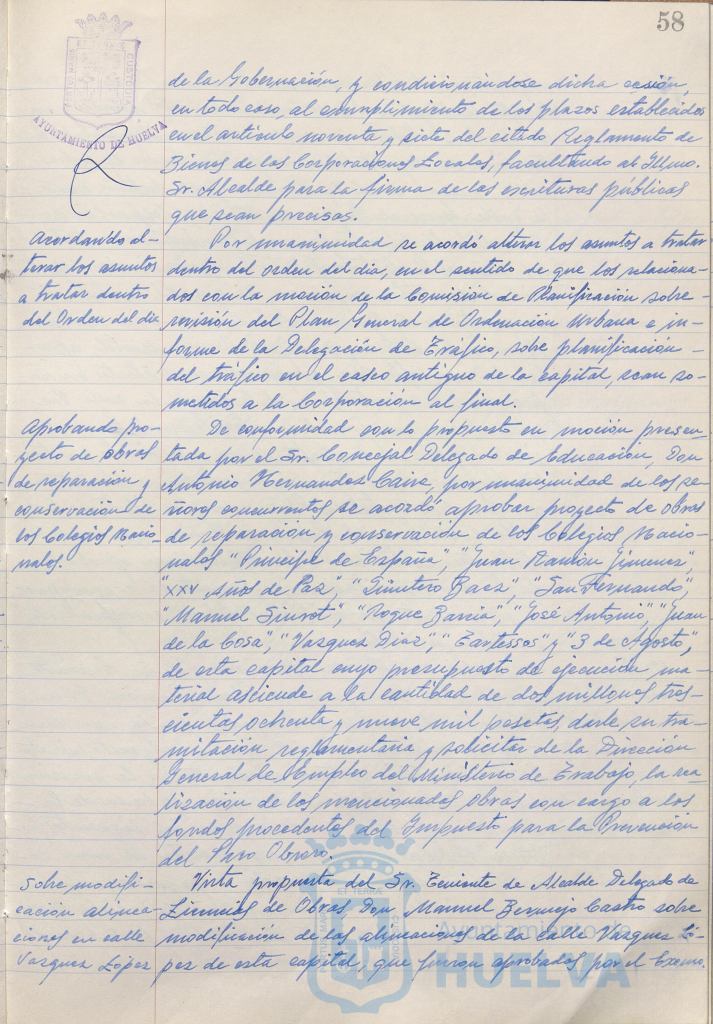 58
AYUNTAMIENTO DE HUELVA
de la Gobernación, y condicionándose dicha cesión,
en todo caso, al cumplimiento de los plazos establecidos
en el artículo noventa y siete del citado Reglamento de
Bienes de las Corporaciones Locales, facultando al Iltmo.
Sr. Alcalde para la firma de las escrituras públicas
que sean precisas.
Acordando al-
terar los asuntos
a tratar dentro
del Orden del día
Por unanimidad se acordó alterar los asuntos a tratar
dentro del orden del día, en el sentido de que los relaciona-
dos con la moción de la Comisión de Planificación sobre
revisión del Plan General de Ordenación Urbana e in-
forme de la Delegación de Tráfico, sobre planificación
del tráfico en el casco antiguo de la capital, sean so-
metidos a la Corporación al final.
Aprobando pro-
yecto de obras
de reparación y
conservación de
los Colegios Nacio-
nales.
De conformidad con lo propuesto en moción presen-
tada por el Sr. Concejal Delegado de Educación, Don
Antonio Hernandez Caire, por unanimidad de los se-
ñores concurrentes se acordó aprobar proyecto de obras
de reparación y conservación de los Colegios Nacio-
nales "Principe de España", "Juan Ramón Jimenez",
"XXV Años de Paz", "Quintero Baez", "San Fernando",
"Manuel Siurot", "Roque Barcia", "José Antonio", "Juan
de la Cosa", "Vazquez Diaz", "Tartessos" y "3 de Agosto",
de esta capital cuyo presupuesto de ejecución ma-
terial asciende a la cantidad de dos millones tres-
cientas ochenta y nueve mil pesetas, darle su tra-
mitación reglamentaria y solicitar de la Dirección
General de Empleo del Ministerio de Trabajo, la rea-
lización de las mencionadas obras con cargo a los
fondos procedentes del Impuesto para la Prevención
del Paro Obrero.
Sobre modifi-
cación alinea-
ciones en calle
Vazquez López
Vista propuesta del Sr. Teniente de Alcalde Delegado de
Licencias de Obras, Don Manuel Bermejo Castro sobre
modificación de las alineaciones de la calle Vazquez Ló-
pez de esta capital, que fueron aprobadas por el Excmo.
Ayuntamiento de
HUELVA